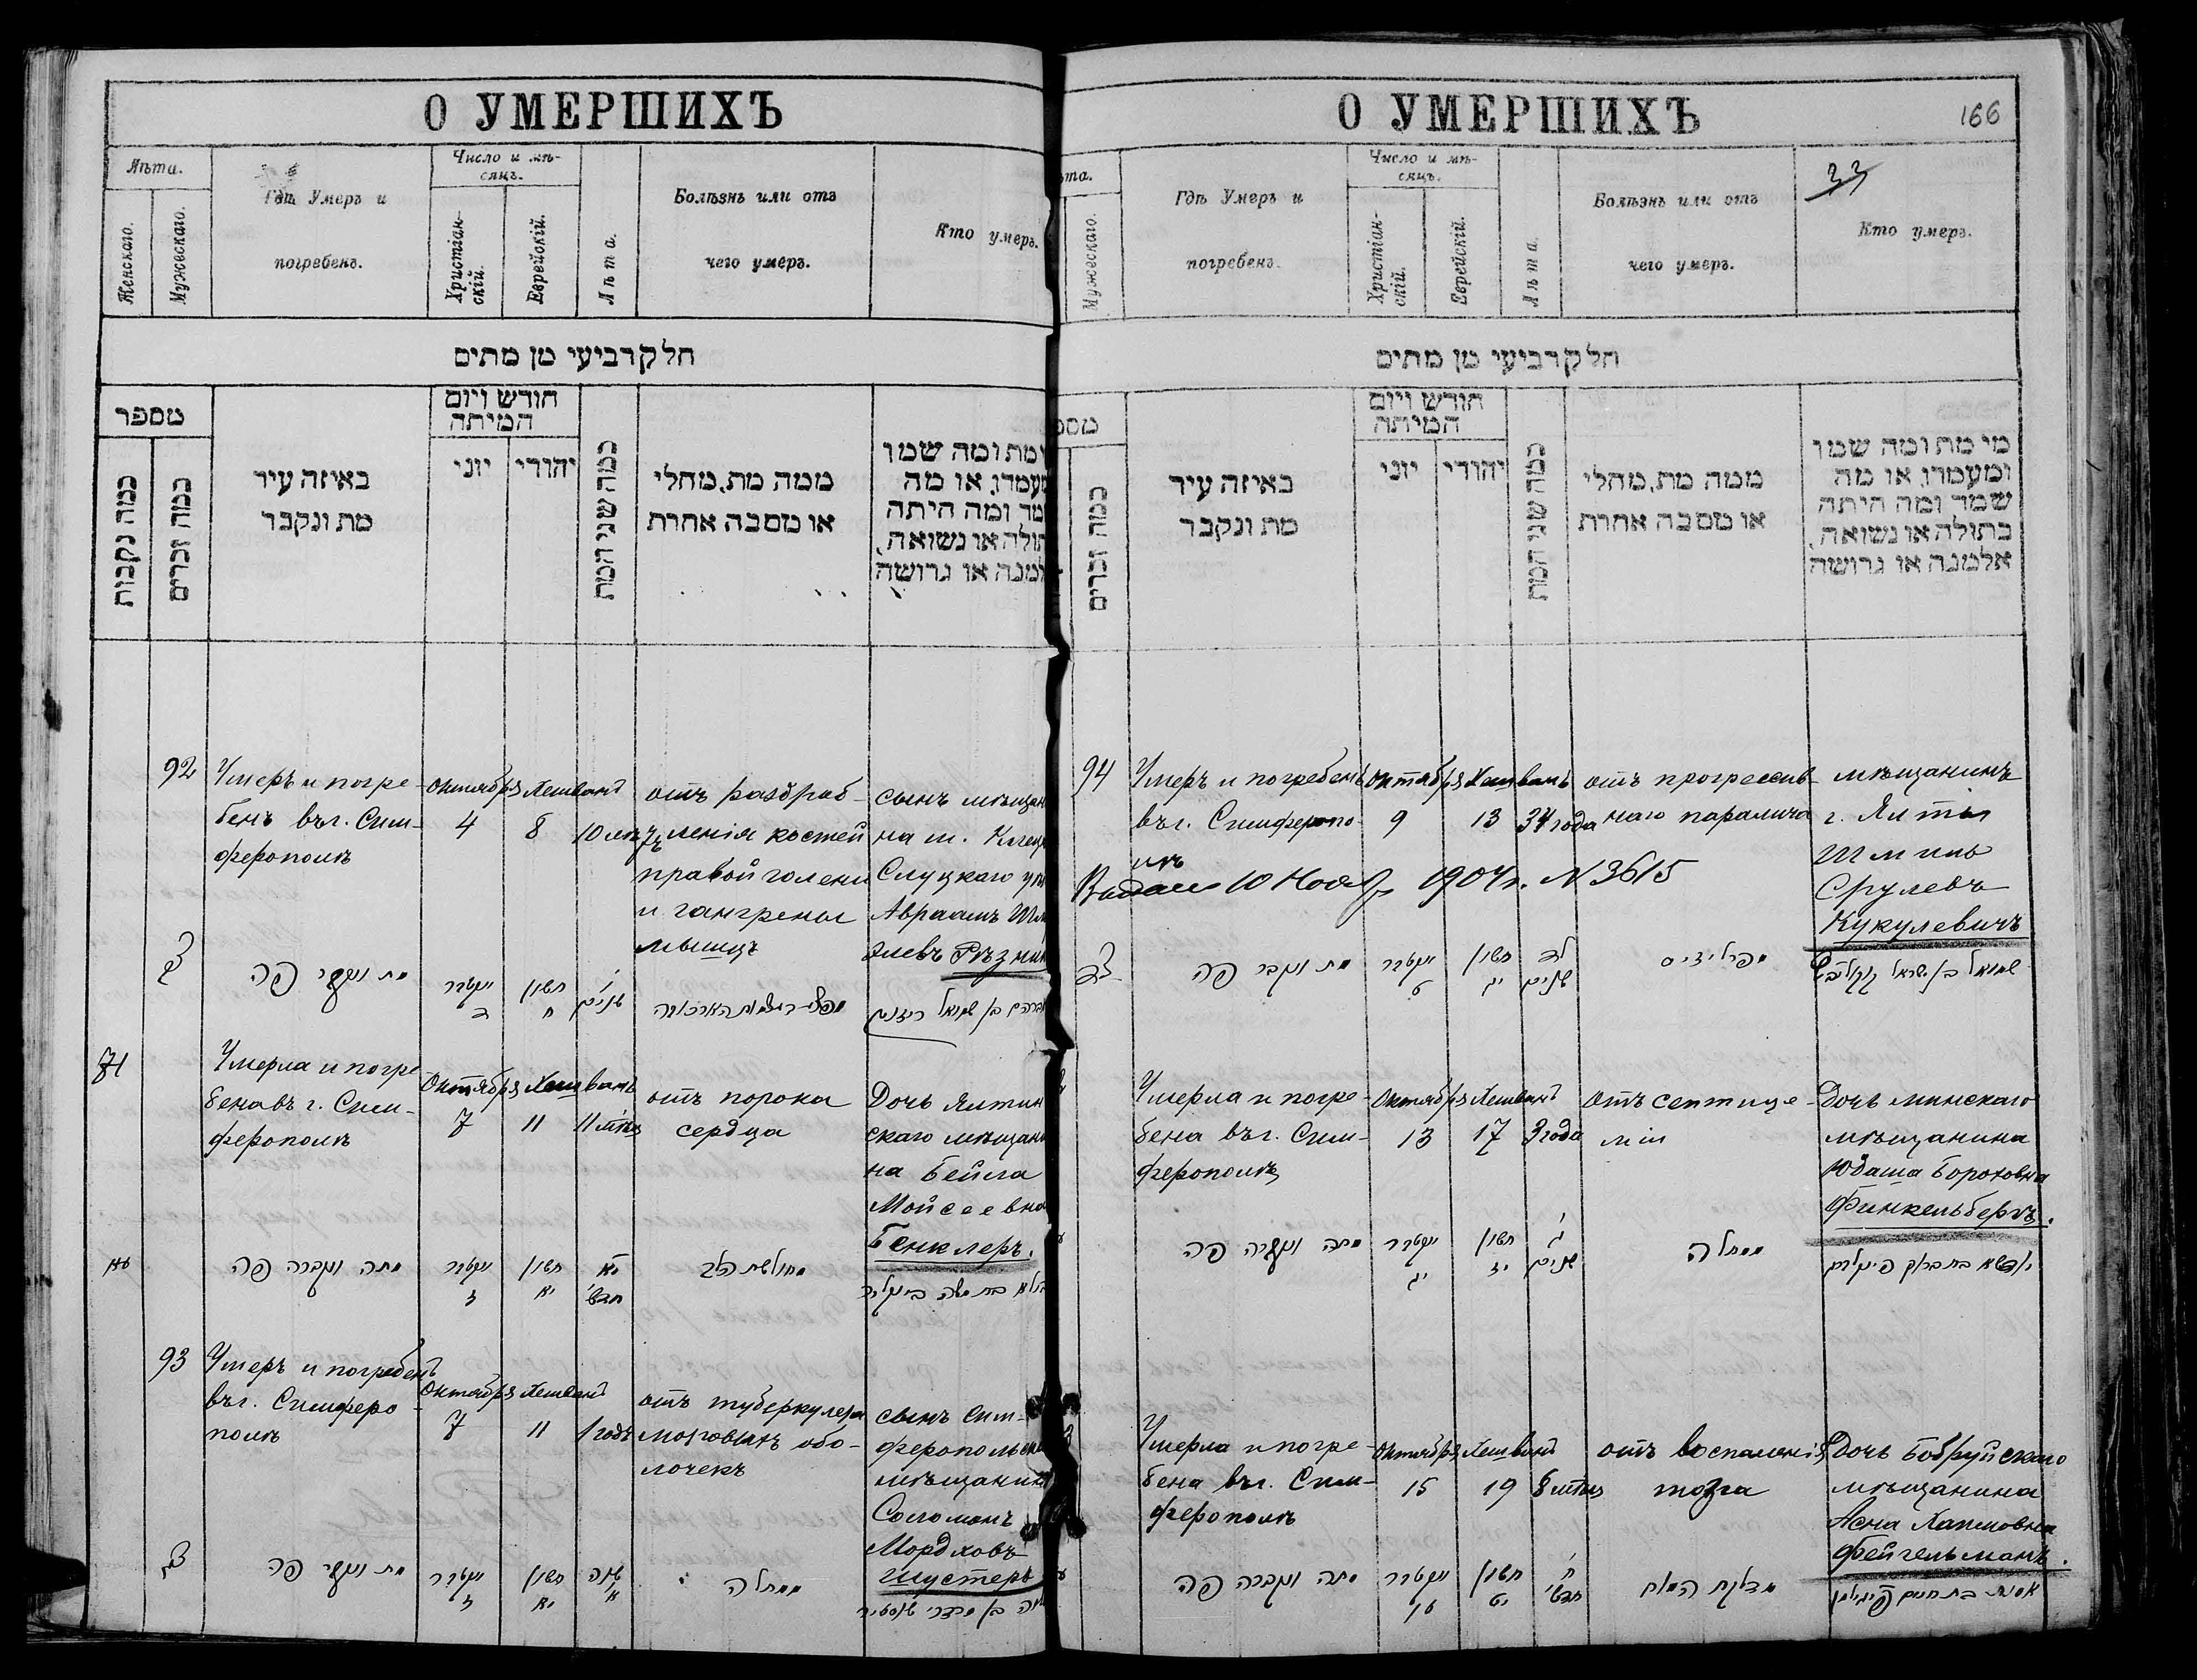 О УМЕРШИХЪ
Лѣта.
Женскаго.
Мужескаго.
Гдѣ Умеръ и
погребенъ.
Число и мѣ-
сяцъ.
Христіан-
скій.
Еврейскій.
Лѣта.
Болѣзнь или отъ
чего умеръ.
Кто умеръ.
חלק רביעי מן מתים
מספר
כמה נקבות
כמה זכרים
באיזה עיר
מת ונקבר
חודש ויום
המיתה
יוני
יהודי
כמה שני המת
ממה מת, מחלי
או מסבה אחרת
ומת ומה שמו
מעמדו, או מה
מד ומה היתה
תולה או נשואה,
מנה או גרושה
92
Умеръ и погре-
бенъ въ г. Сим-
ферополѣ
Октябрь
4
Хешванъ
8
10 лѣтъ
отъ раздроб-
ленія костей
правой голени
и гангрены
мышцъ
сынъ мѣщан
на м. Клец
Слуцкаго у
Авраамъ
Рѣзни
מת ונקבר פה
אקטובר
ד
חשון
ח
י
שנים
אברהם בן שמואל
71
Умерла и погре
бена въ г. Сим-
ферополѣ
Октябрь
7
Хешванъ
11
11 мѣс
отъ порока
сердца
Дочь Ялтин
скаго мѣщан
на Бейла
Мойсеевна
Бенклеръ.
עא
מתה ונקברה פה
אקטובר
ז
חשון
יא
יא
חדשי
מחולשת הלב
בילא בת משה בענקליר
93
Умеръ и погребенъ
въ г. Симферо-
полѣ
Октябрь
7
Хешванъ
11
1 годъ
отъ туберкулеза
мозговыхъ обо-
лочекъ
сынъ Сим-
феропольска
мѣщанина
Соломонъ
Мордховъ
Шустеръ
צג
מת ונקבר פה
אקטובר
ז
חשון
יא
שנה
א
ממחלה
בן מרדכי שוסטיר
О УМЕРШИХЪ
166
33
ѣта.
Мужескаго.
Гдѣ Умеръ и
погребенъ.
Число и мѣ-
сяцъ.
Христіан-
скій.
Еврейскій.
Лѣта.
Болѣзнь или отъ
чего умеръ.
Кто умеръ.
חלק רביעי מן מתים
מספ
כמה זכרים
באיזה עיר
מת ונקבר
חודש ויום
המיתה
יוני
יהודי
כמה שני המת
ממה מת, מחלי
או מסבה אחרת
מי מת ומה שמו
ומעמדו, או מה
שמד ומה היתה
בתולה או נשואה,
אלמנה או גרושה
94
Умеръ и погребенъ
въ г. Симферопо-
лѣ
Октябрь
9
Хешванъ
13
34 года
отъ прогрессив-
наго паралича
мѣщанинъ
г. Ялты
Шмиль
Срулевъ
Кукулевичъ
Выдано 10 Нояб 1904 г. N 3615
צד
מת ונקבר פה
אקטובר
ט
חשון
יג
לד
שנים
מפרליזיס
שמואל בן ישראל קוקולביץ
Умерла и погре-
бена въ г. Сим-
ферополѣ
Октябрь
13
Хешванъ
17
3 года
отъ септице-
міи
Дочь минскаго
мѣщанина
Юдаша Борохова
Финкельбергъ.
מתה ונקברה פה
אקטובר
יג
חשון
יז
ג
שנים
ממחלה
Умерла и погре-
бена въ г. Сим-
ферополѣ
Октябрь
15
Хешванъ
19
8 мѣс
отъ воспаленія
мозга
Дочь Бобруйскаго
мѣщанина
Асна Хаимовна
Фейгельманъ.
מתה ונקברה פה
אקטובר
טו
חשון
יט
ח
חדשי
מדלקת המוח
אסנת בת חיים פייגילמן